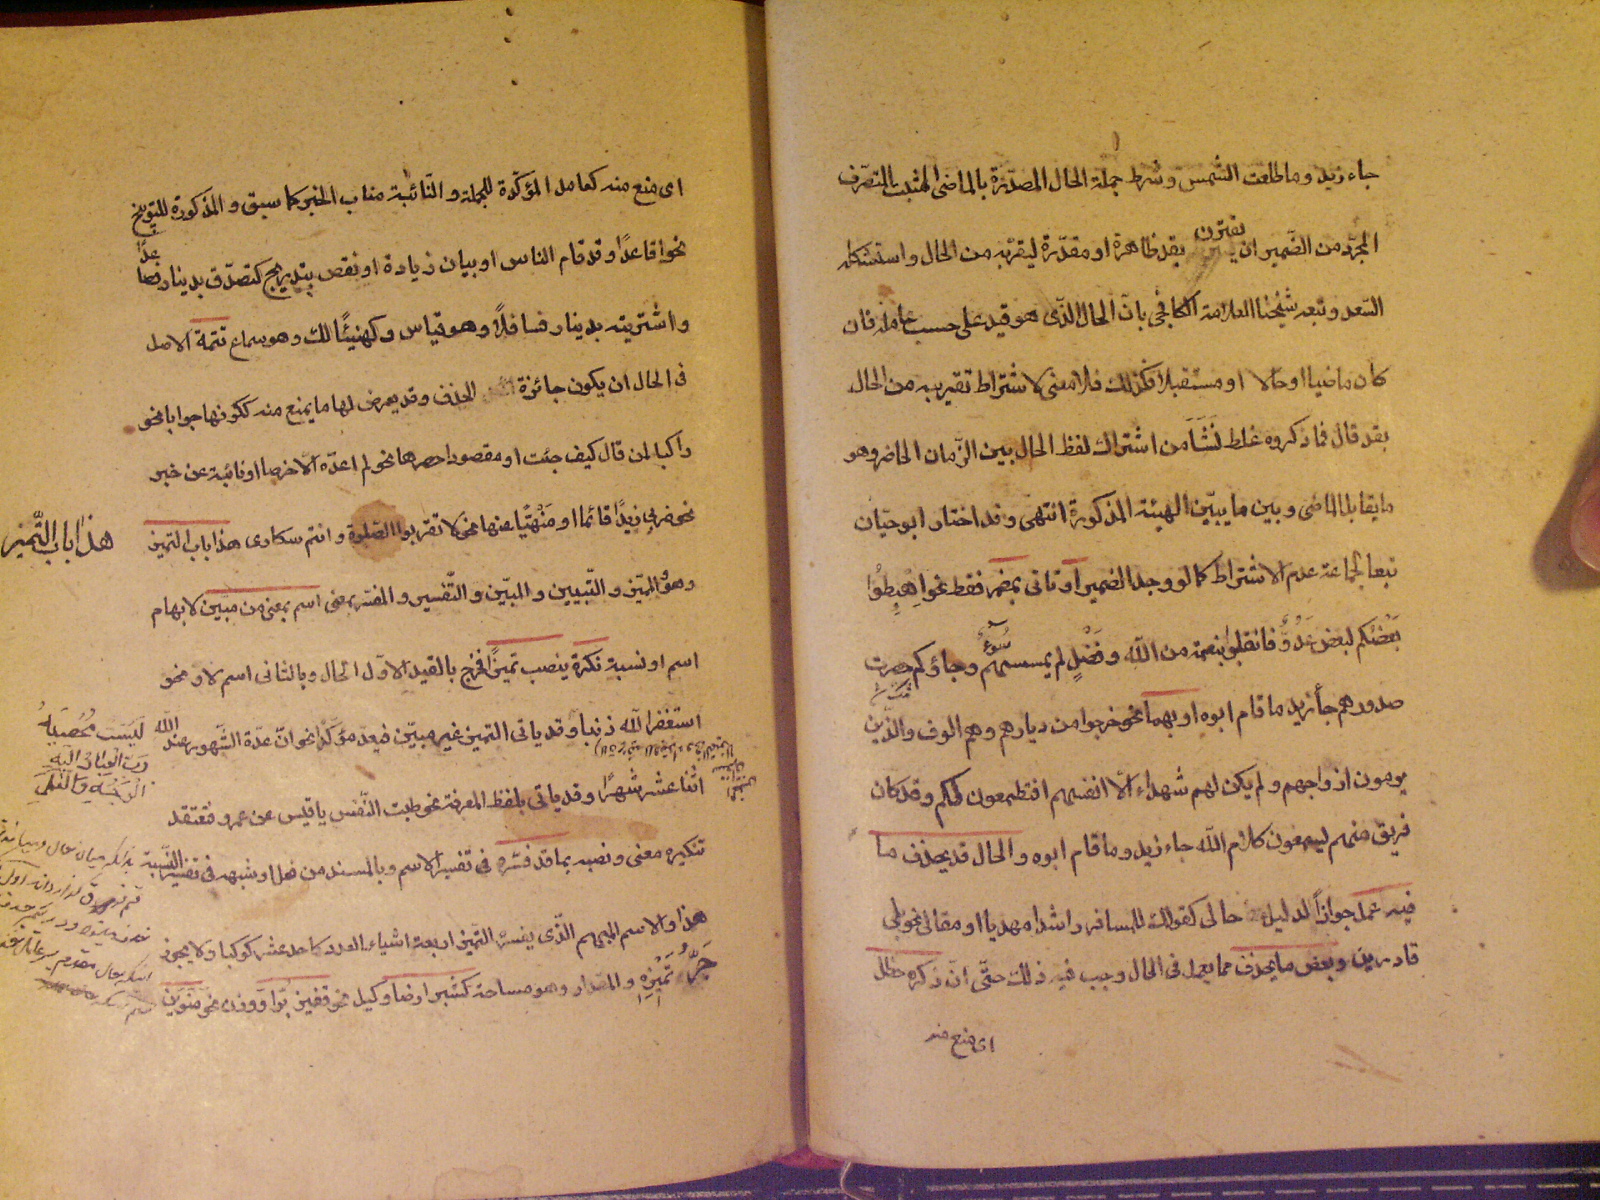 جاء زيد وما طلعت الشمس وشرط جملة الحال المصدّرة بالماضى المثبت المتصرّف
المجرّد من الضّمير ان يقترن بقد ظاهرة او مقدّرة ليقرّبه من الحال واستشكله
السّعد وتبعه شيخنا العلامة الكافيجى بانّ الحال الّذى هو قيد على حسب عامله فان
كان ماضيا او حالا او مستقبلا فكذلك فلا معنى لاشتراط تقريبه من الحال
بقد قال فما ذكروه غلط نَشَأَ من اشتراك لفظ الحال بين الزّمان الحاضر وهو
ما يقابل الماضى وبين ما يبيّن الهيئة المذكورة انتهى وقد اختار ابو حيّان
تبعا لجماعة عدم الاشتراط كما لو وجد الضمير او تاتى بمضمر فقط نحو اهْبِطُوا
بَعْضُكم لبعض عَدُوٌّ فانقلبوا بنعمة من اللّه وفَضْلٍ لم يمسسهم سُوءٌ وجاؤكم حصرت
صدورهم جاء زيد ما قام ابوه او بهما نحو خرجوا من ديارهم وهم الوف والّذين
يرمون ازواجهم ولم يكن لهم شهداء الّا انفسهم افتطمعون لكم وقد كان
فريق منهم يسمعون كلام اللّه جاء زيد وما قام ابوه والحال قد يحذف ما
فيه عمل جوازاً لدليل حالى كقولك للمسافر راشدا مهديا او مقالى نحو بلى
قادرين وبعض ما يحذف مما يعمل فى الحال وجب فيه ذلك حتّى انّ ذكره حظل
اى منع منه
اى منع منه كعامل المؤكّدة للجملة والنّائبة مناب الخبر كما سبق والمذكورة للتوبيخ
نحو اقاعدًا وقد قام الناس او بيان زيادة او نقص بتدريج كتصدّق بدينار فصاعدًا
واشتريته بدينار فسافلًا وهو قياس وكهنيئًا لك وهو سماع تتمة الاصل
فى الحال ان يكون جائزة الحذف وقد يعرض لها ما يمنع منه ككونها جوابا نحو
راكبا لمن قال كيف جئت او مقصورا حصرها نحو لم اعدّه الّا حرضا او نائبة عن خبر
نحو ضربى زيدًا قائما او مَنْهيّا عنها نحو لا تقربوا الصّلوة وانتم سكارى هذا باب التميز
هذا باب التّميز
وهو المميّز والتّبيين والمبيّن والتّفسير والمفسّر بمعنى اسم بمعنى من مبين لابهام
اسم او نسبة نكرة ينصب تميزًا فخرج بالقيد الاوّل الحال وبالثانى اسم لا ونحو
استغفر اللّه ذنبا وقد ياتى التميز غير مبيّن فيعدّ مؤكّدًا نحو انّ عدّة الشّهور عند اللّه
لَيسَت مُحصِيَهُ
ربّ العباد اليه
الوَجْهُ والعَمَلُ
اثنا عشر شهرًا وقد ياتى بلفظ المعرفة نحو طبت النّفس يا قيس عن عمرو فيعتقد
تنكيره معنى ونصبه بما قد فسّره فى تفسير الاسم وبالمسند من فعل او شبهه فى تفسير النّسبة
هذا والاسم المبهم الّذى يفسّره التميز اربعة اشياء العدد كاحد عشر كوكبا ولا يجوز
جَرُّ تَمَيُّزِهِ والمقدار وهو مساحة كشبر ارضا وكيل نحو قفيز بُرّا ووزن نحو مَنَوَيْن